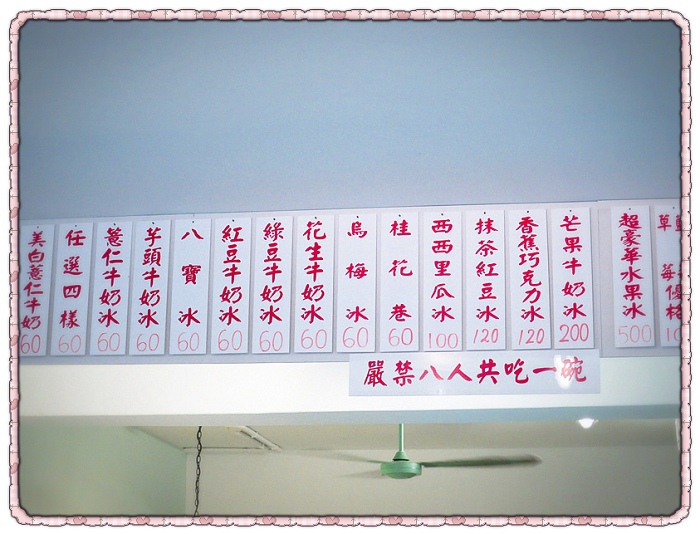 美白薏仁牛奶 60
任選四樣 60
薏仁牛奶冰 60
芋頭牛奶冰 60
八寶冰 60
紅豆牛奶冰 60
綠豆牛奶冰 60
花生牛奶冰 60
烏梅冰 60
桂花巷 60
西西里瓜冰 100
抹茶紅豆冰 120
香蕉巧克力冰 120
芒果牛奶冰 200
超豪華水果冰 500
嚴禁八人共吃一碗